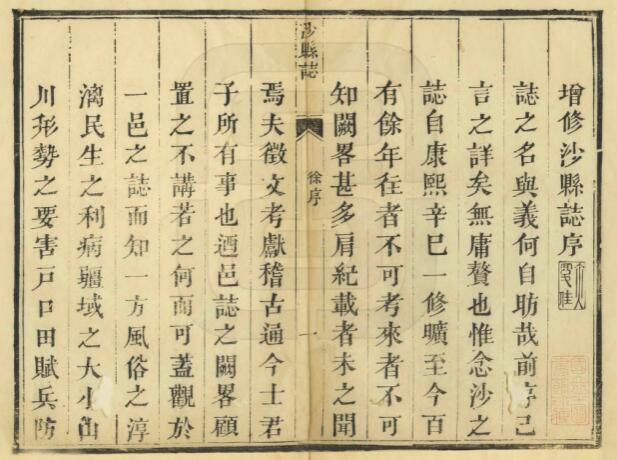 增修沙縣誌序
誌之名與義何自昉哉前序已
言之詳矣無庸贅也惟念沙之
誌自康熙辛巳一修曠至今百
有餘年往者不可考來者不可
知闕畧甚多肩紀載者未之聞
沙縣誌
徐序
一
焉夫徵文考獻稽古通今士君
子所有事也迺邑誌之闕畧顧
置之不講若之何而可蓋觀於
一邑之誌而知一方風俗之淳
漓民生之利病疆域之大小山
川形勢之要害戸口田賦兵防